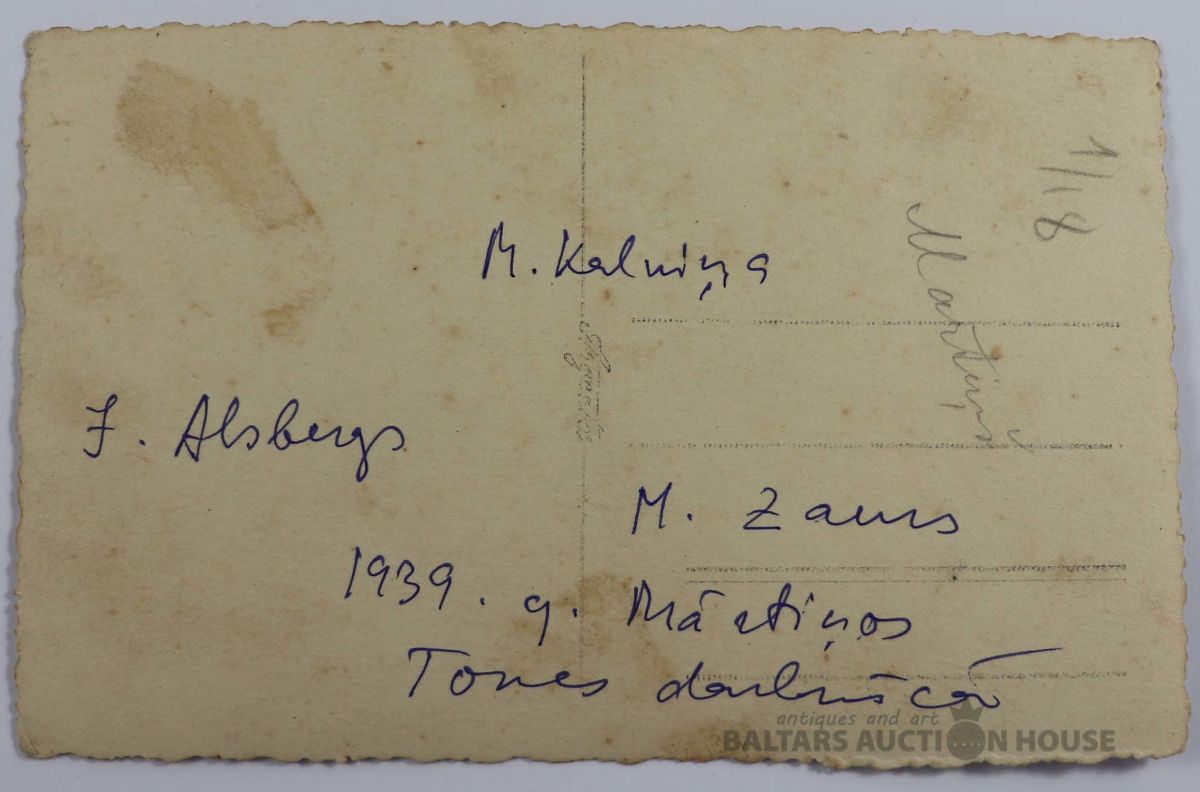 M. Kalniņa
J. Alsbergs
M. Zaurs
1939. g. Mārtiņos
Tones darbnīcā
1/18
Martiņš
antiques and art
BALTARS AUCTION HOUSE